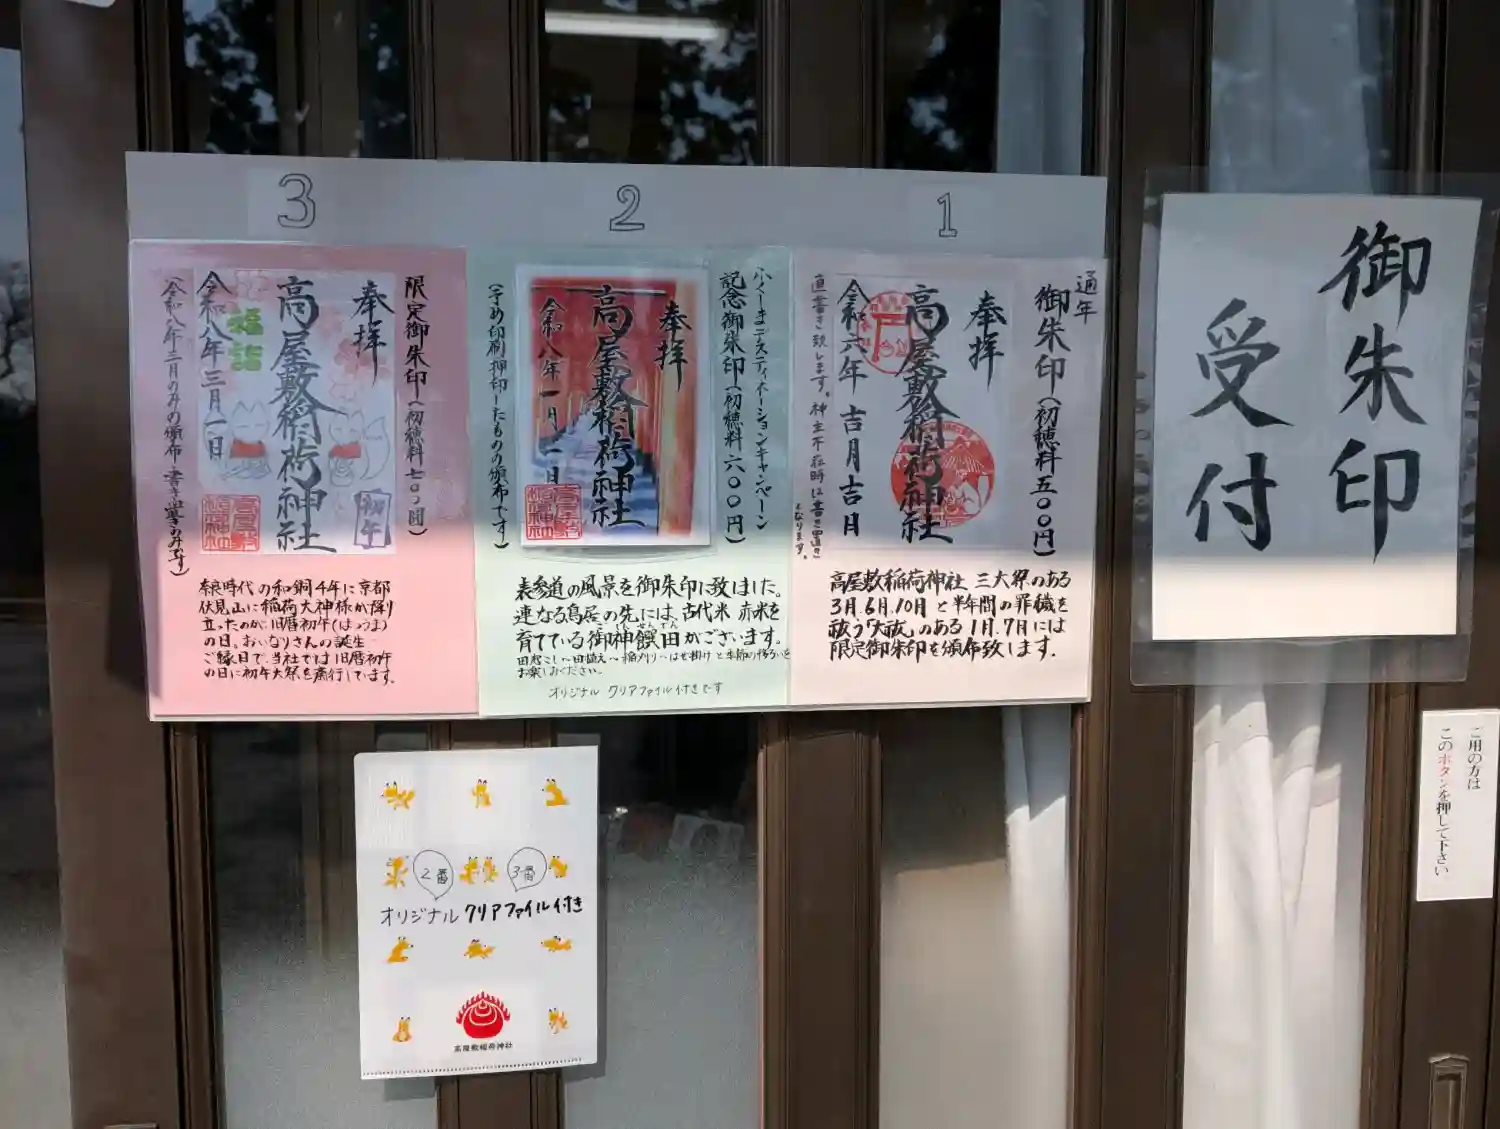 御朱印
受付
ご用の方は
このボタンを押して下さい
1
通年
御朱印(初穂料五〇〇円)
奉拝
高屋敷稲荷神社
令和六年吉月吉日
直書き致します。神主不在時は書き置き
となります。
高屋敷稲荷神社 三大祭のある
3月.6月.10月と半年間の罪穢を
祓う「大祓」のある1月.7月には
限定御朱印を頒布致します.
2
ふくしまデスティネーションキャンペーン
記念御朱印(初穂料六〇〇円)
奉拝
高屋敷稲荷神社
令和八年一月一日
(予め印刷押印したものの頒布です)
表参道の風景を御朱印に致しました。
連なる鳥居の先には、古代米 赤米を
育てている御神饌田がございます。
田起こし〜田植え〜稲刈り〜はせ掛けと季節の移ろいを
お楽しみください。
オリジナル クリアファイル付きです
3
限定御朱印(初穂料七〇〇円)
奉拝
高屋敷稲荷神社
初午
福詣
令和八年三月一日
(令和八年三月のみの頒布 書き置きのみです)
奈良時代の和銅4年に京都
伏見山に稲荷大神様が降り
立ったのが旧暦初午(はつうま)
の日。おいなりさんの誕生
ご縁日で、当社では旧暦初午
の日に初午大祭を斎行しています。
2番
3番
オリジナル クリアファイル付き
高屋敷稲荷神社